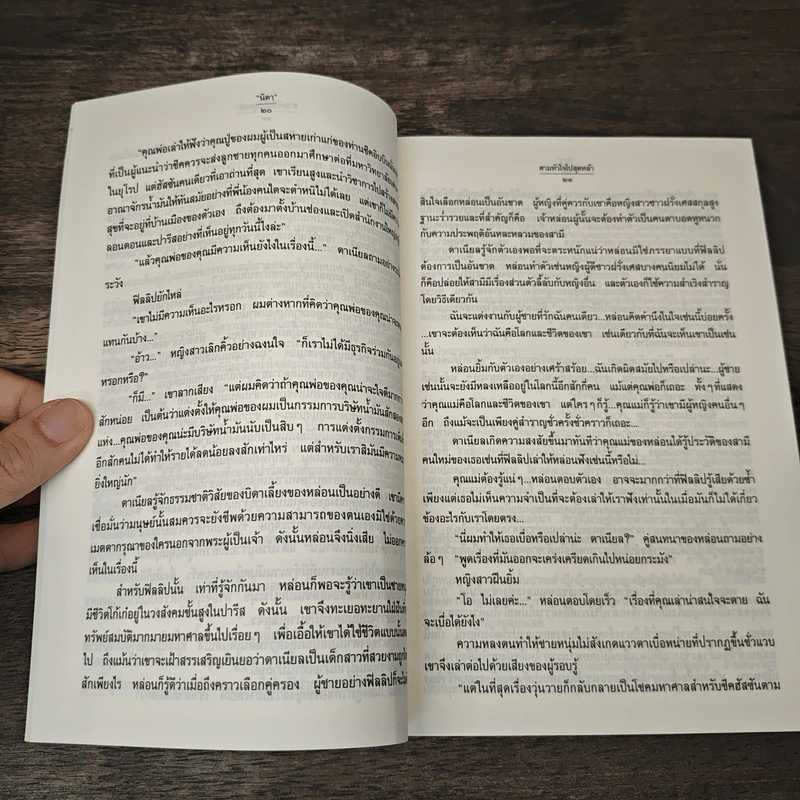 "นิดา"
๒๐
"คุณพ่อเล่าให้ฟังว่าคุณปู่ของผมผู้เป็นสหายเก่าแก่ของท่านชีคอิบบิน
ที่เป็นผู้แนะนำว่าชีคควรจะส่งลูกชายทุกคนออกมาศึกษาต่อที่มหาวิทยาลัย
ในยุโรป แต่ฮัสซันคนเดียวที่เอาถ่านที่สุด เขาเรียนสูงและนำวิชาการไปสร้าง
อาณาจักรน้ำมันให้ทันสมัยอย่างที่พี่น้องคนใดจะตำหนิไม่ได้เลย แต่เขาก็ไม่
สุขที่จะอยู่ที่บ้านเมืองของตัวเอง ถึงต้องมาตั้งบ้านช่องและเปิดสำนักงานใหญ่
ลอนดอนและปารีสอย่างที่เห็นอยู่ทุกวันนี้ไงล่ะ"
"แล้วคุณพ่อของคุณมีความเห็นยังไงในเรื่องนี้..." ดาเนียลถามอย่าง
ระวัง
ฟิลลิปยักไหล่
"เขาไม่มีความเห็นอะไรหรอก ผมต่างหากที่คิดว่าคุณพ่อของคุณน่าจะ
แทนกันบ้าง..."
"อ้าว..." หญิงสาวเลิกคิ้วอย่างฉงนใจ "ก็เราไม่ได้มีธุรกิจร่วมกันอยู่
หรอกหรือ?"
"ก็มี..." เขาลากเสียง "แต่ผมคิดว่าถ้าคุณพ่อของคุณน่าจะใจดีมากกว่า
สักหน่อย เป็นต้นว่าแต่งตั้งให้คุณพ่อของผมเป็นกรรมการบริษัทน้ำมันสักสอง
แห่ง...คุณพ่อของคุณน่ะมีบริษัทน้ำมันนับเป็นสิบๆ การแต่งตั้งกรรมการเพิ่ม
อีกสักคนไม่ได้ทำให้รายได้ลดน้อยลงสักเท่าไหร่ แต่สำหรับเราสิมันมีความ
ยิ่งใหญ่นัก"
ดาเนียลรู้จักธรรมชาติวิสัยของบิดาเลี้ยงของหล่อนเป็นอย่างดี เขามี
เชื่อมั่นว่ามนุษย์นั้นสมควรจะยังชีพด้วยความสามารถของตนเองมิใช่ด้วย
เมตตากรุณาของใครนอกจากพระผู้เป็นเจ้า ดังนั้นหล่อนจึงนิ่งเสีย ไม่ออก
เห็นในเรื่องนี้
สำหรับฟิลลิปนั้น เท่าที่รู้จักกันมา หล่อนก็พอจะรู้ว่าเขาเป็นชาย
มีชีวิตโก้เก๋อยู่ในวงสังคมชั้นสูงในปารีส ดังนั้น เขาจึงทะเยอทะยานใฝ่ฝัน
ทรัพย์สมบัติมากมายมหาศาลขึ้นไปเรื่อยๆ เพื่อเอื้อให้เขาได้ใช้ชีวิตแบบนั้น
ไป ถึงแม้นว่าเขาจะเฝ้าสรรเสริญเยินยอว่าดาเนียลเป็นเด็กสาวที่สวยงามถูกใจ
สักเพียงไร หล่อนก็รู้ดีว่าเมื่อถึงคราวเลือกคู่ครอง ผู้ชายอย่างฟิลลิปก็จะ
ตามหัวใจไปสุดหล้า
๒๑
สินใจเลือกหล่อนเป็นอันขาด ผู้หญิงที่คู่ควรกับเขาคือหญิงสาวชาวฝรั่งเศสสกุลสูง
ฐานะร่ำรวยและที่สำคัญก็คือ เจ้าหล่อนผู้นั้นจะต้องทำตัวเป็นคนตาบอดหูหนวก
กับความประพฤติอันหละหลวมของสามี
ดาเนียลรู้จักตัวเองพอที่จะตระหนักแน่ว่าหล่อนมิใช่ภรรยาแบบที่ฟิลลิป
ต้องการเป็นอันขาด หล่อนทำตัวเช่นหญิงผู้ดีชาวฝรั่งเศสบางคนนิยมไม่ได้ นั่น
ก็คือปล่อยให้สามีมีเรื่องส่วนตัวลี้ลับกับหญิงอื่น และตัวเองก็ใช้ความสำเริงสำราญ
โดยวิธีเดียวกัน
ฉันจะแต่งงานกับผู้ชายที่รักฉันคนเดียว...หล่อนคำนึงในใจเช่นนี้บ่อยครั้ง
...เขาจะต้องเห็นว่าฉันคือโลกและชีวิตของเขา เช่นเดียวกับที่ฉันจะเห็นเขาเป็นเช่น
นั้น
หล่อนยิ้มกับตัวเองอย่างเศร้าสร้อย...ฉันเกิดผิดสมัยไปหรือเปล่านะ...ผู้ชาย
เช่นนั้นจะยังมีหลงเหลืออยู่ในโลกนี้อีกสักกี่คน แม้แต่คุณพ่อก็เถอะ ทั้งๆ ที่แสดง
ว่าคุณแม่คือโลกและชีวิตของเขา แต่ใครๆ ก็รู้...คุณแม่ก็รู้ว่าเขามีผู้หญิงคนอื่นๆ
อีก ถึงแม้จะเป็นเพียงคู่สำราญชั่วครั้งชั่วคราวก็เถอะ...
ดาเนียลเกิดความสงสัยขึ้นมาทันทีว่าคุณแม่ของหล่อนได้รู้ประวัติของสามี
คนใหม่ของเธอเช่นที่ฟิลลิปเล่าให้หล่อนฟังเช่นนี้หรือไม่...
คุณแม่ต้องรู้แน่ๆ...หล่อนตอบตัวเอง อาจจะมากกว่าที่ฟิลลิปรู้เสียด้วยซ้ำ
เพียงแต่เธอไม่เห็นความจำเป็นที่จะต้องเล่าให้เราฟังเท่านั้นในเมื่อมันก็ไม่ได้เกี่ยว
ข้องอะไรกับเราโดยตรง...
"นี่ผมทำให้เธอเบื่อหรือเปล่าน่ะ ดาเนียล?" คู่สนทนาของหล่อนถามอย่าง
ล้อๆ "พูดเรื่องที่มันออกจะเคร่งเครียดเกินไปหน่อยกระมัง"
หญิงสาวฝืนยิ้ม
"โอ ไม่เลยค่ะ..." หล่อนตอบโดยเร็ว "เรื่องที่คุณเล่าน่าสนใจจะตาย ฉัน
จะเบื่อได้ยังไง"
ความหลงตนทำให้ชายหนุ่มไม่สังเกตแววตาเบื่อหน่ายที่ปรากฏขึ้นชั่วแวบ
เขาจึงเล่าต่อไปด้วยเสียงของผู้รอบรู้
"แต่ในที่สุดเรื่องวุ่นวายก็กลับกลายเป็นโชคมหาศาลสำหรับชีคฮัสซันตาม